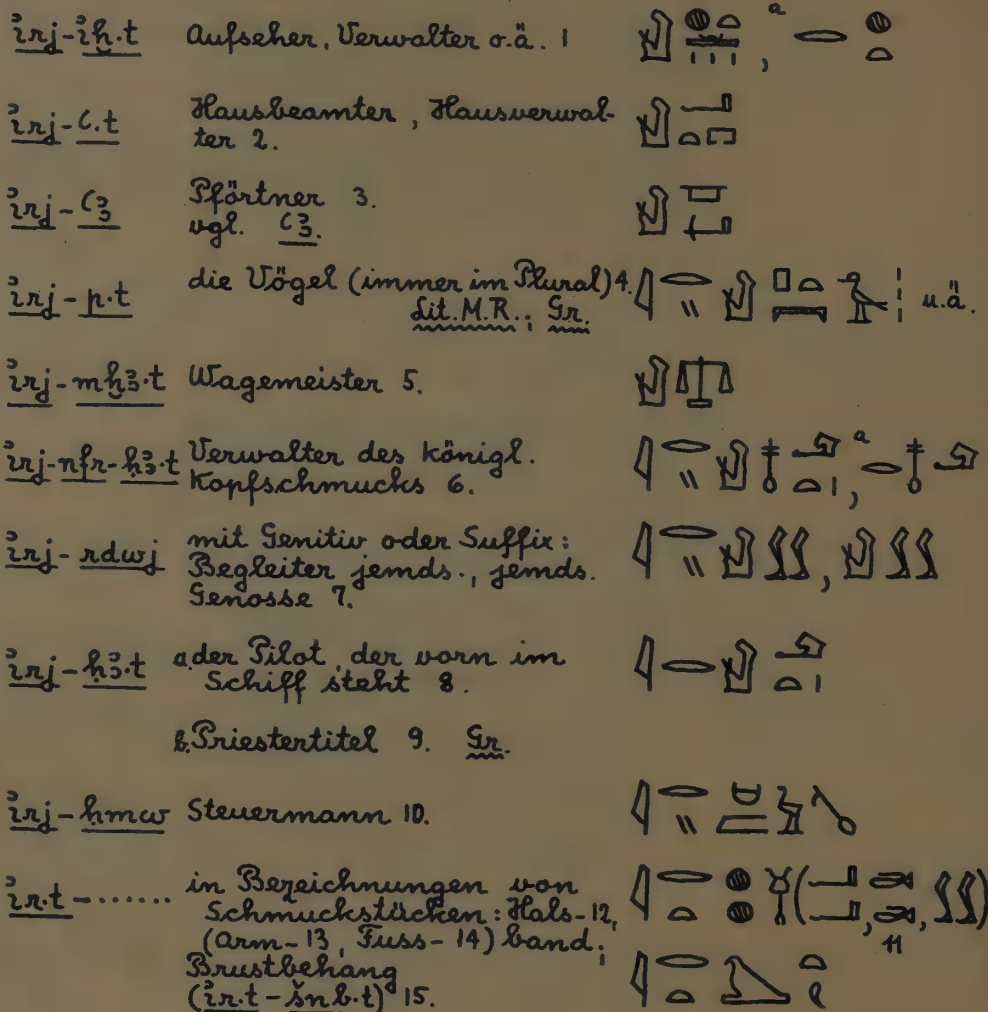 ꞽrj-ꞽḫ.t Aufseher, Verwalter o.ä. 1
a
ꞽrj-ꜥ.t Hausbeamter, Hausverwal-
ter 2.
ꞽrj-ꜥꜣ Pförtner 3.
vgl. ꜥꜣ.
ꞽrj-p.t die Vögel (immer im Plural) 4. u.ä.
Lit. M.R.; Gr.
ꞽrj-mḫꜣ.t Wagemeister 5.
ꞽrj-nfr-ḥꜣ.t Verwalter des königl.
Kopfschmucks 6.
a
ꞽrj-rdwj mit Genitiv oder Suffix:
Begleiter jemds., jemds.
Genosse 7.
ꞽrj-ḥꜣ.t a. der Pilot, der vorn im
Schiff steht 8.
b. Priestertitel 9. Gr.
ꞽrj-ḥmw Steuermann 10.
ꞽr.t-...... in Bezeichnungen von
Schmuckstücken: Hals-12,
(Arm-13, Fuss-14) band;
11
Brustbehang
(ꞽr.t-šnb.t) 15.